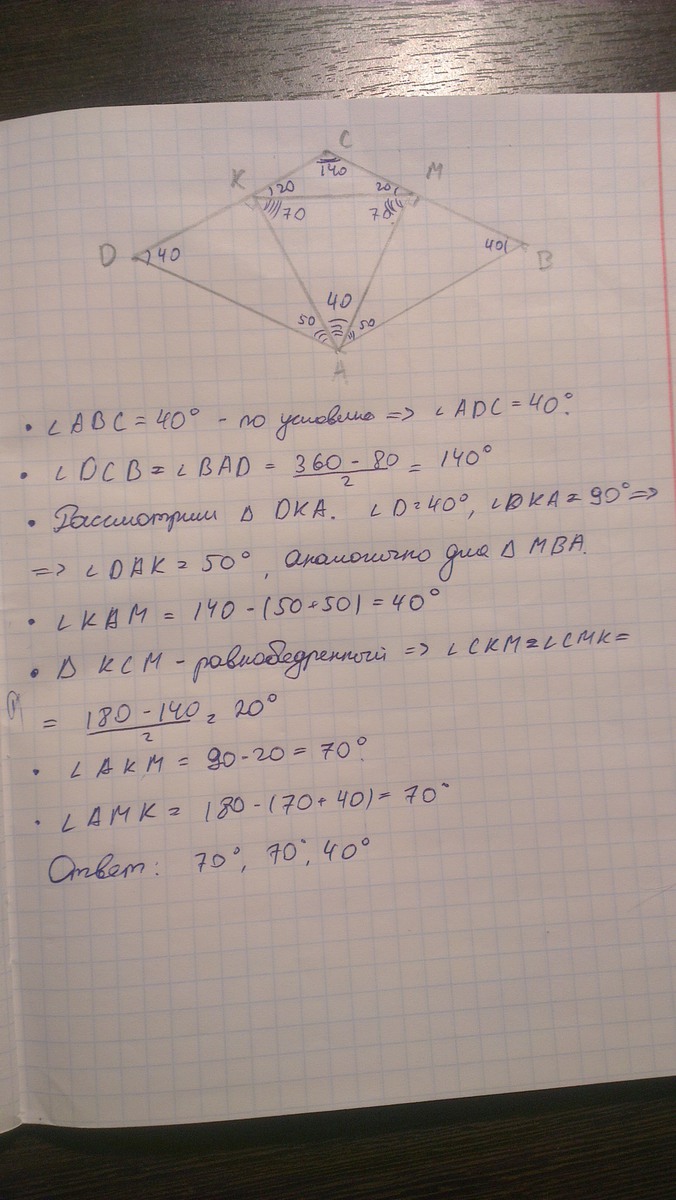 C
140
K
20
20
M
70
70
D
40
40
B
40
50
50
A
• ∠ABC = 40° - по условию => ∠ADC = 40°.
• ∠DCB = ∠BAD = (360 - 80)/2 = 140°
• Рассмотрим Δ DKA. ∠D = 40°, ∠DKA = 90° =>
=> ∠DAK = 50°, аналогично для Δ MBA.
• ∠KAM = 140 - (50+50) = 40°
• Δ KCM - равнобедренный => ∠CKM = ∠CMK =
= (180 - 140)/2 = 20°
• ∠AKM = 90 - 20 = 70°.
• ∠AMK = 180 - (70 + 40) = 70°
Ответ: 70°, 70°, 40°